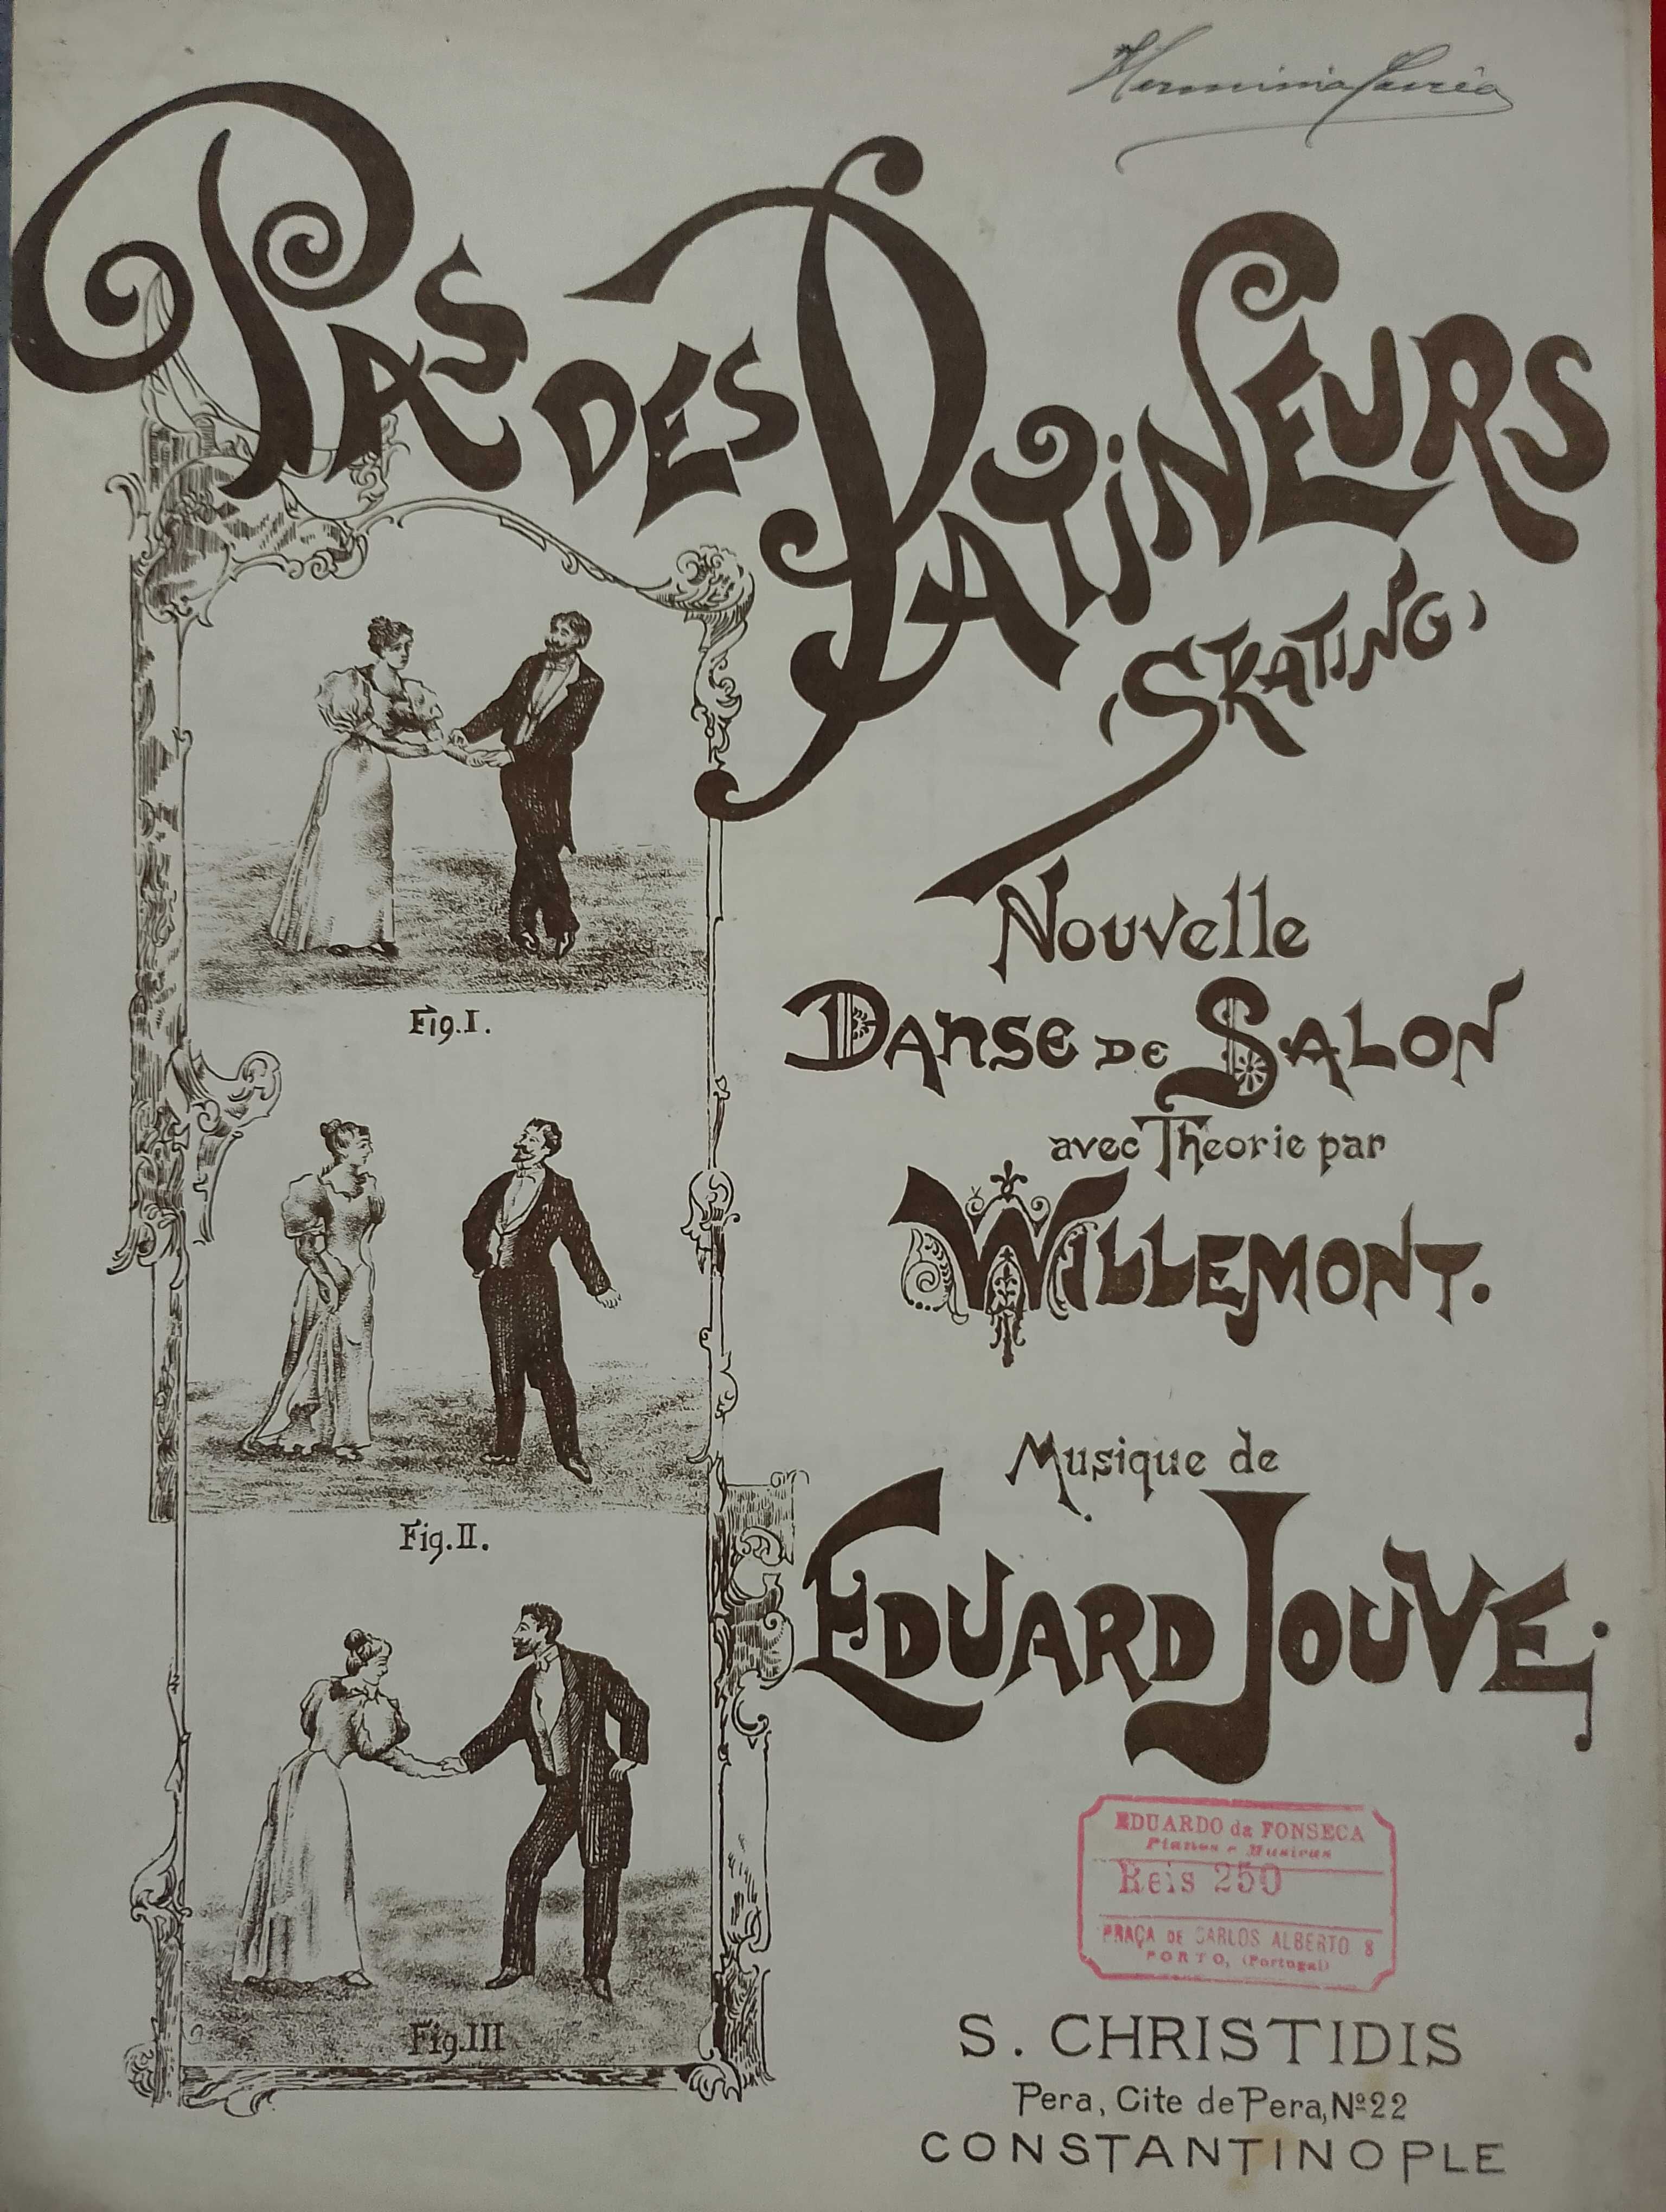 Herminia
PAS DES PATINEURS
(SKATING)
Nouvelle
DANSE DE SALON
avec Theorie par
WILLEMONT.
Musique de
EDUARD JOUVE.
Fig. I.
Fig. II.
Fig. III
EDUARDO da FONSECA
Pianos e Musicas
Reis 250
PRAÇA DE CARLOS ALBERTO 8
PORTO, (Portugal)
S. CHRISTIDIS
Pera, Cite de Pera, Nº 22
CONSTANTINOPLE